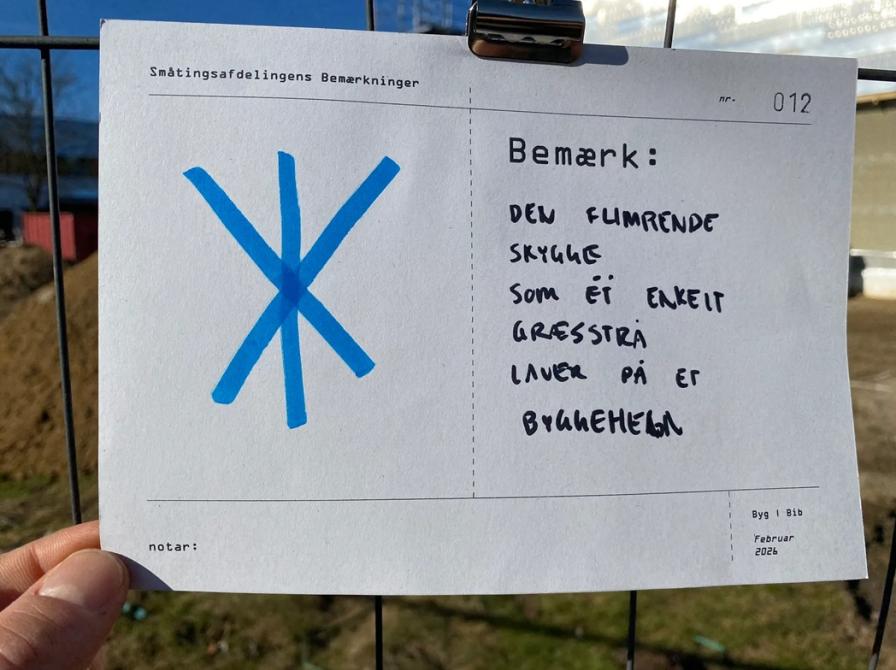 Småtingsafdelingens Bemærkninger
nr. 012
Bemærk:
DEN FLIMRENDE
SKYGGE
SOM ËT ENKELT
GRÆSSTRÅ
LAVER PÅ ET
BYGGEHEGN
notar:
Byg i Bib
Februar
2026